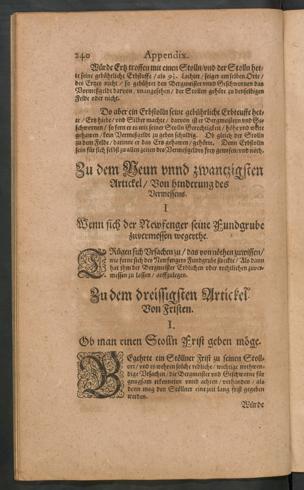 240 Appendix.
Würde Ertz troffen mit einen Stolln/vnd der Stolln het-
te seine gebührliche Erbteuffe / als 9½. Lachter / seiger am selben Orte /
des Ertzes nicht / so gebühret den Bergmeister vnnd Geschwornen das
Vermeßgeldt darvon / vnangesehen / der Stollen gehöre zu denselbigen
Felde oder nicht.
Do aber ein Erbstolln seine gebührliche Erbteuffe het-
te / Ertz hiebe / vnd Silber machte / darvon ist er Bergmeistern vnd Ge-
schwornen / so fern er es mit seiner Stolln Gerechtigkeit / höhe vnd
gehawen / kein Vermeßgeldt zu geben schuldig. Ob gleich der Stolln
zu dem Felde / darinne er das Ertz gehawen / gehörte. Denn Erbstolln
sein für sich selbst zu allen zeiten des Vermeßgeldes frey gewesen vnd noch.
Zu dem Neun vnnd zwantzigsten
Artickel / Von hinderung des
Vermessens.
I
Wenn sich der Newfenger seine Fundgrube
zuvermessen wegerthe.
TRügen sich Vrsachen zu / das von nöthen zuwissen /
wie ferne sich des Newfengers Fundgrube streckte / Als dann
hat ihm der Bergmeister Erblichen oder rechtlichen zuver-
messen zu lassen / aufflegen.
Zu dem dreissigsten Artickel
Von Fristen.
I.
Ob man einen Stolln Frist geben möge.
BEgehrte ein Stöllner Frist zu seinem Stoll-
ort / vnd es wehren solche redliche / wichtige notwen-
dige Vrsachen / die Bergmeister vnd Geschworne für
gnugsam erkenneten vnnd achten / verhanden / als
denn mag den Stöllner eine zeit lang frist gegeben
werden.
Würde